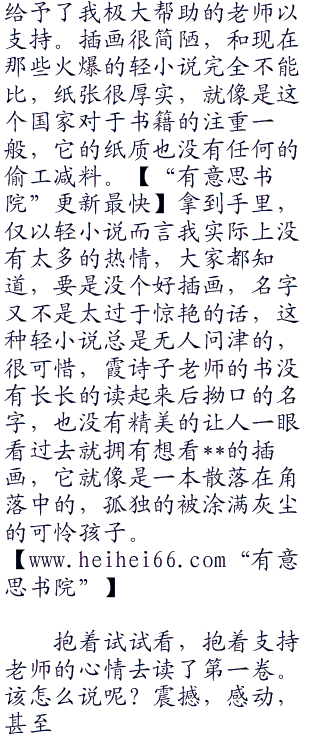 给予了我极大帮助的老师以
支持。插画很简陋，和现在
那些火爆的轻小说完全不能
比，纸张很厚实，就像是这
个国家对于书籍的注重一
般，它的纸质也没有任何的
偷工减料。【“有意思书
院”更新最快】拿到手里，
仅以轻小说而言我实际上没
有太多的热情，大家都知
道，要是没个好插画，名字
又不是太过于惊艳的话，这
种轻小说总是无人问津的，
很可惜，霞诗子老师的书没
有长长的读起来后拗口的名
字，也没有精美的让人一眼
看过去就拥有想看**的插
画，它就像是一本散落在角
落中的，孤独的被涂满灰尘
的可怜孩子。
【www.heihei66.com“有意
思书院”】
抱着试试看，抱着支持
老师的心情去读了第一卷。
该怎么说呢？震撼，感动，
甚至